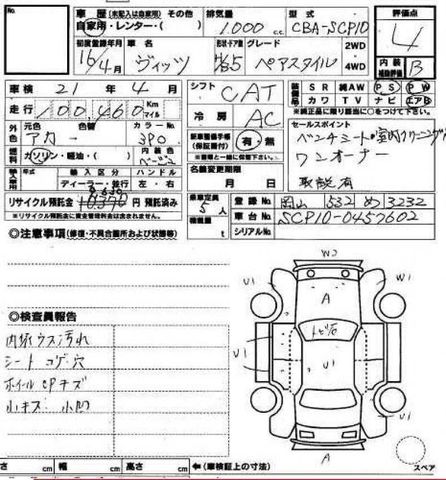 車歴 (未記入は自家用) その他
自家用・レンター・( )
排気量
1.000 c.c.
型式
CBA-SCP10
評価点
4
初度登録年月
16/4月
車名
ヴィッツ
形状 ドア数
5
グレード
ペアスタイル
2WD
4WD
内装
補助評価
B
車検 21年 4月
シフト
CAT
SR 純AW PS PW
カワ TV ナビ エアB
走行 100,460 Km マイル
冷房
AC
セールスポイント
ベンチシート・室内クリーニング
ワンオーナー
取説有
外色
元色 色替 カラーNo.
アカー 3P0
(保証書付)
有・無
燃料
ガソリン・軽油・( )
内装色
ベージュ
輸入車用
輸入区分 ハンドル
ディーラー・並行
名義変更期限
月 日
リサイクル預託金 10,370 円預託済み
乗車定員
5人
積載量
登録No. 岡山 532 め 3232
車台No. SCP10-0457602
シリアルNo.
◎注意事項(修復・不具合箇所および状態等)
◎検査員報告
内張ウス汚れ
シート コゲ穴
ホイールCPキズ
小キズ 小凹
W2
A
U1
U1
トビ石
U1
U1
U1
A
スペア
さ cm 幅 cm 高さ cm ←(車検証上の寸法)